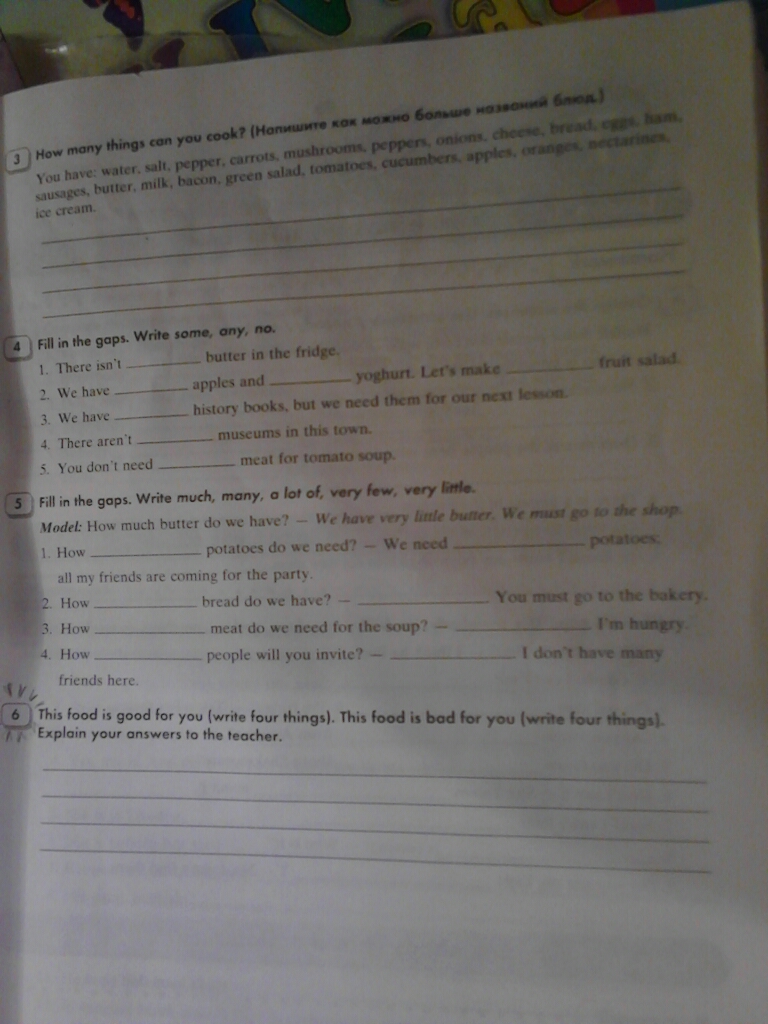 3 How many things can you cook? (Напишите как можно больше названий блюд.)
You have: water, salt, pepper, carrots, mushrooms, peppers, onions, cheese, bread, eggs, ham,
sausages, butter, milk, bacon, green salad, tomatoes, cucumbers, apples, oranges, nectarines,
ice cream.
4 Fill in the gaps. Write some, any, no.
1. There isn't __________ butter in the fridge.
2. We have __________ apples and __________ yoghurt. Let's make __________ fruit salad.
3. We have __________ history books, but we need them for our next lesson.
4. There aren't __________ museums in this town.
5. You don't need __________ meat for tomato soup.
5 Fill in the gaps. Write much, many, a lot of, very few, very little.
Model: How much butter do we have? — We have very little butter. We must go to the shop.
1. How __________ potatoes do we need? — We need __________ potatoes;
all my friends are coming for the party.
2. How __________ bread do we have? — __________ You must go to the bakery.
3. How __________ meat do we need for the soup? — __________ I'm hungry.
4. How __________ people will you invite? — __________ I don't have many
friends here.
6 This food is good for you (write four things). This food is bad for you (write four things).
Explain your answers to the teacher.